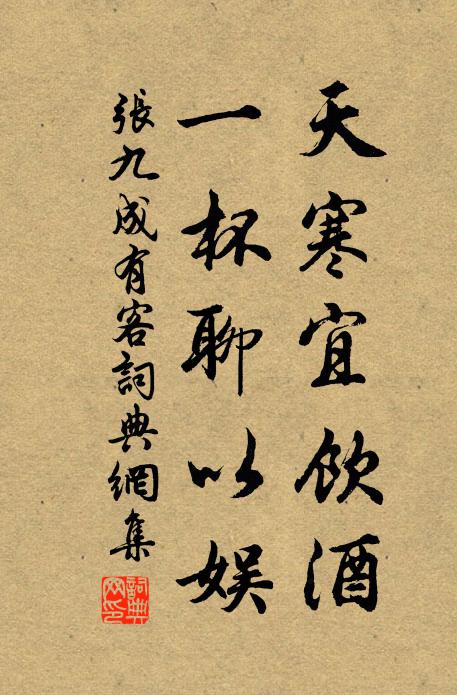 天寒宜飲酒
一杯聊以娱
張九成有客詞典網集
詞典網印